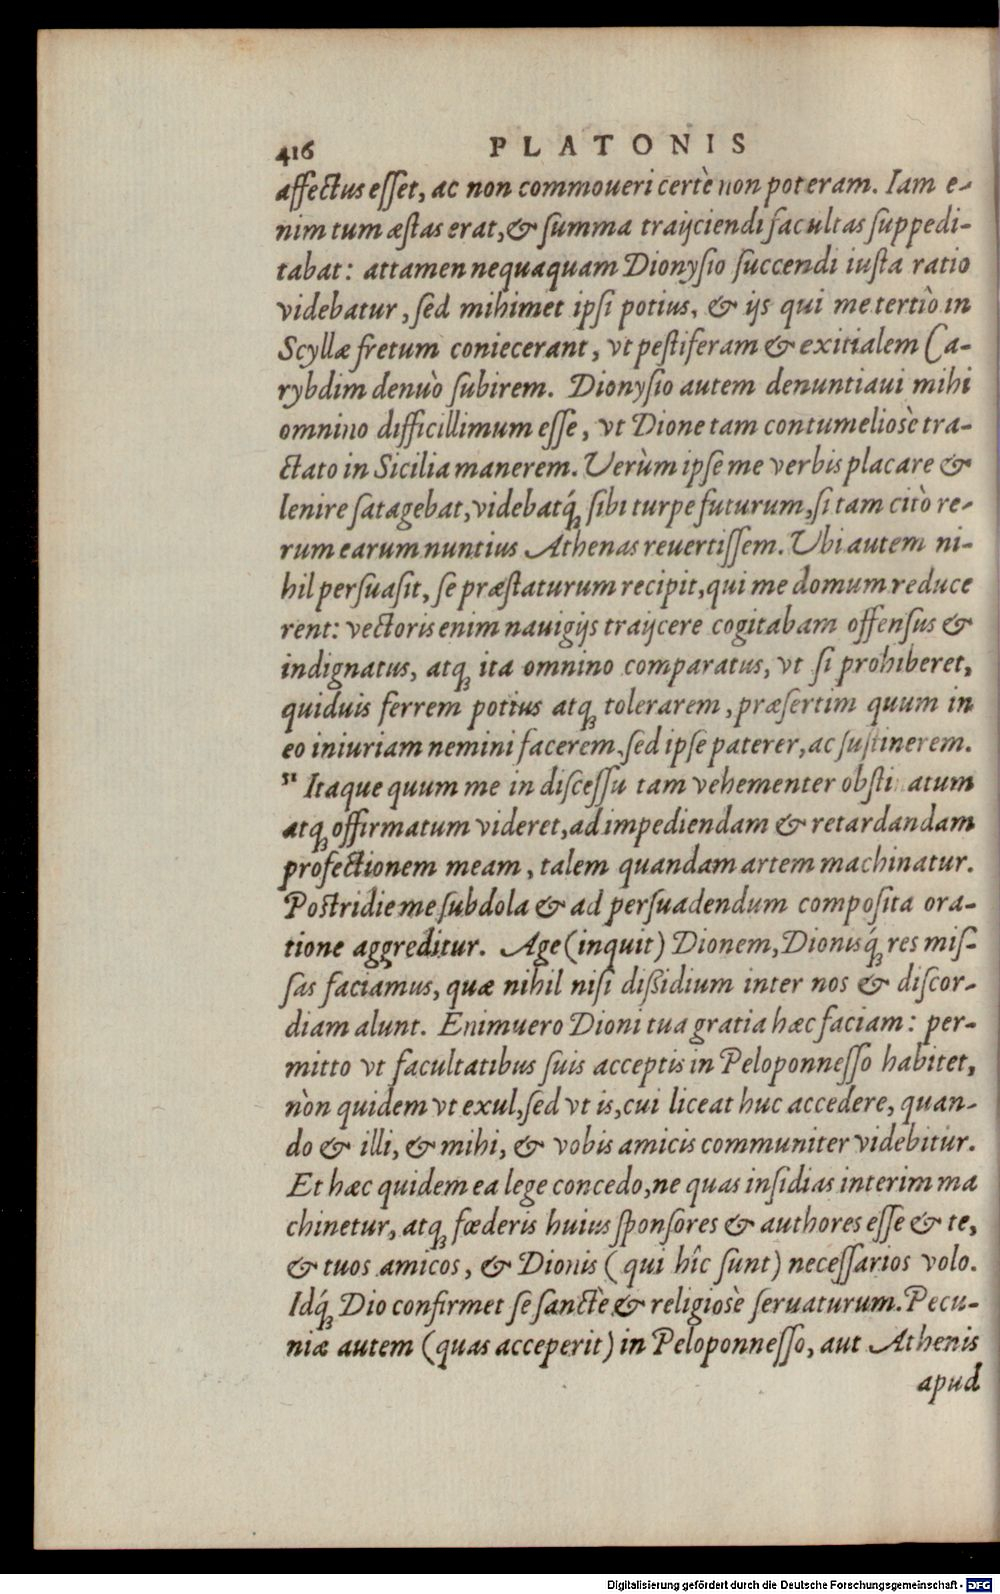 416 PLATONIS
affectus esset, ac non commoueri certè non poteram. Iam e-
nim tum æstas erat, & summa traijciendi facultas suppedi-
tabat: attamen nequaquam Dionysio succendi iusta ratio
videbatur, sed mihimet ipsi potius, & ijs qui me tertiò in
Scyllæ fretum coniecerant, vt pestiferam & exitialem Ca-
rybdim denuò subirem. Dionysio autem denuntiaui mihi
omnino difficillimum esse, vt Dione tam contumeliosè tra-
ctato in Sicilia manerem. Verùm ipse me verbis placare &
lenire satagebat, videbatq́; sibi turpe futurum, si tam citò re-
rum earum nuntius Athenas reuertissem. Vbi autem ni-
hil persuasit, se præstaturum recipit, qui me domum reduce
rent: vectoris enim nauigijs traijcere cogitabam offensus &
indignatus, atq; ita omnino comparatus, vt si prohiberet,
quiduis ferrem potius atq; tolerarem, præsertim quum in
eo iniuriam nemini facerem, sed ipse paterer, ac sustinerem.
51 Itaque quum me in discessu tam vehementer obsti atum
atq; offirmatum videret, ad impediendam & retardandam
profectionem meam, talem quandam artem machinatur.
Postridie me subdola & ad persuadendum composita ora-
tione aggreditur. Age (inquit) Dionem, Dionisq́; res mis-
sas faciamus, quæ nihil nisi dißidium inter nos & discor-
diam alunt. Enimuero Dioni tua gratia hæc faciam: per-
mitto vt facultatibus suis acceptis in Peloponnesso habitet,
nòn quidem vt exul, sed vt is, cui liceat huc accedere, quan-
do & illi, & mihi, & vobis amicis communiter videbitur.
Et hæc quidem ea lege concedo, ne quas insidias interim ma
chinetur, atq; fœderis huius sponsores & authores esse & te,
& tuos amicos, & Dionis (qui hîc sunt) necessarios volo.
Idq́; Dio confirmet se sanctè & religiosè seruaturum. Pecu-
niæ autem (quas acceperit) in Peloponnesso, aut Athenis
apud
Digitalisierung gefördert durch die Deutsche Forschungsgemeinschaft - DFG